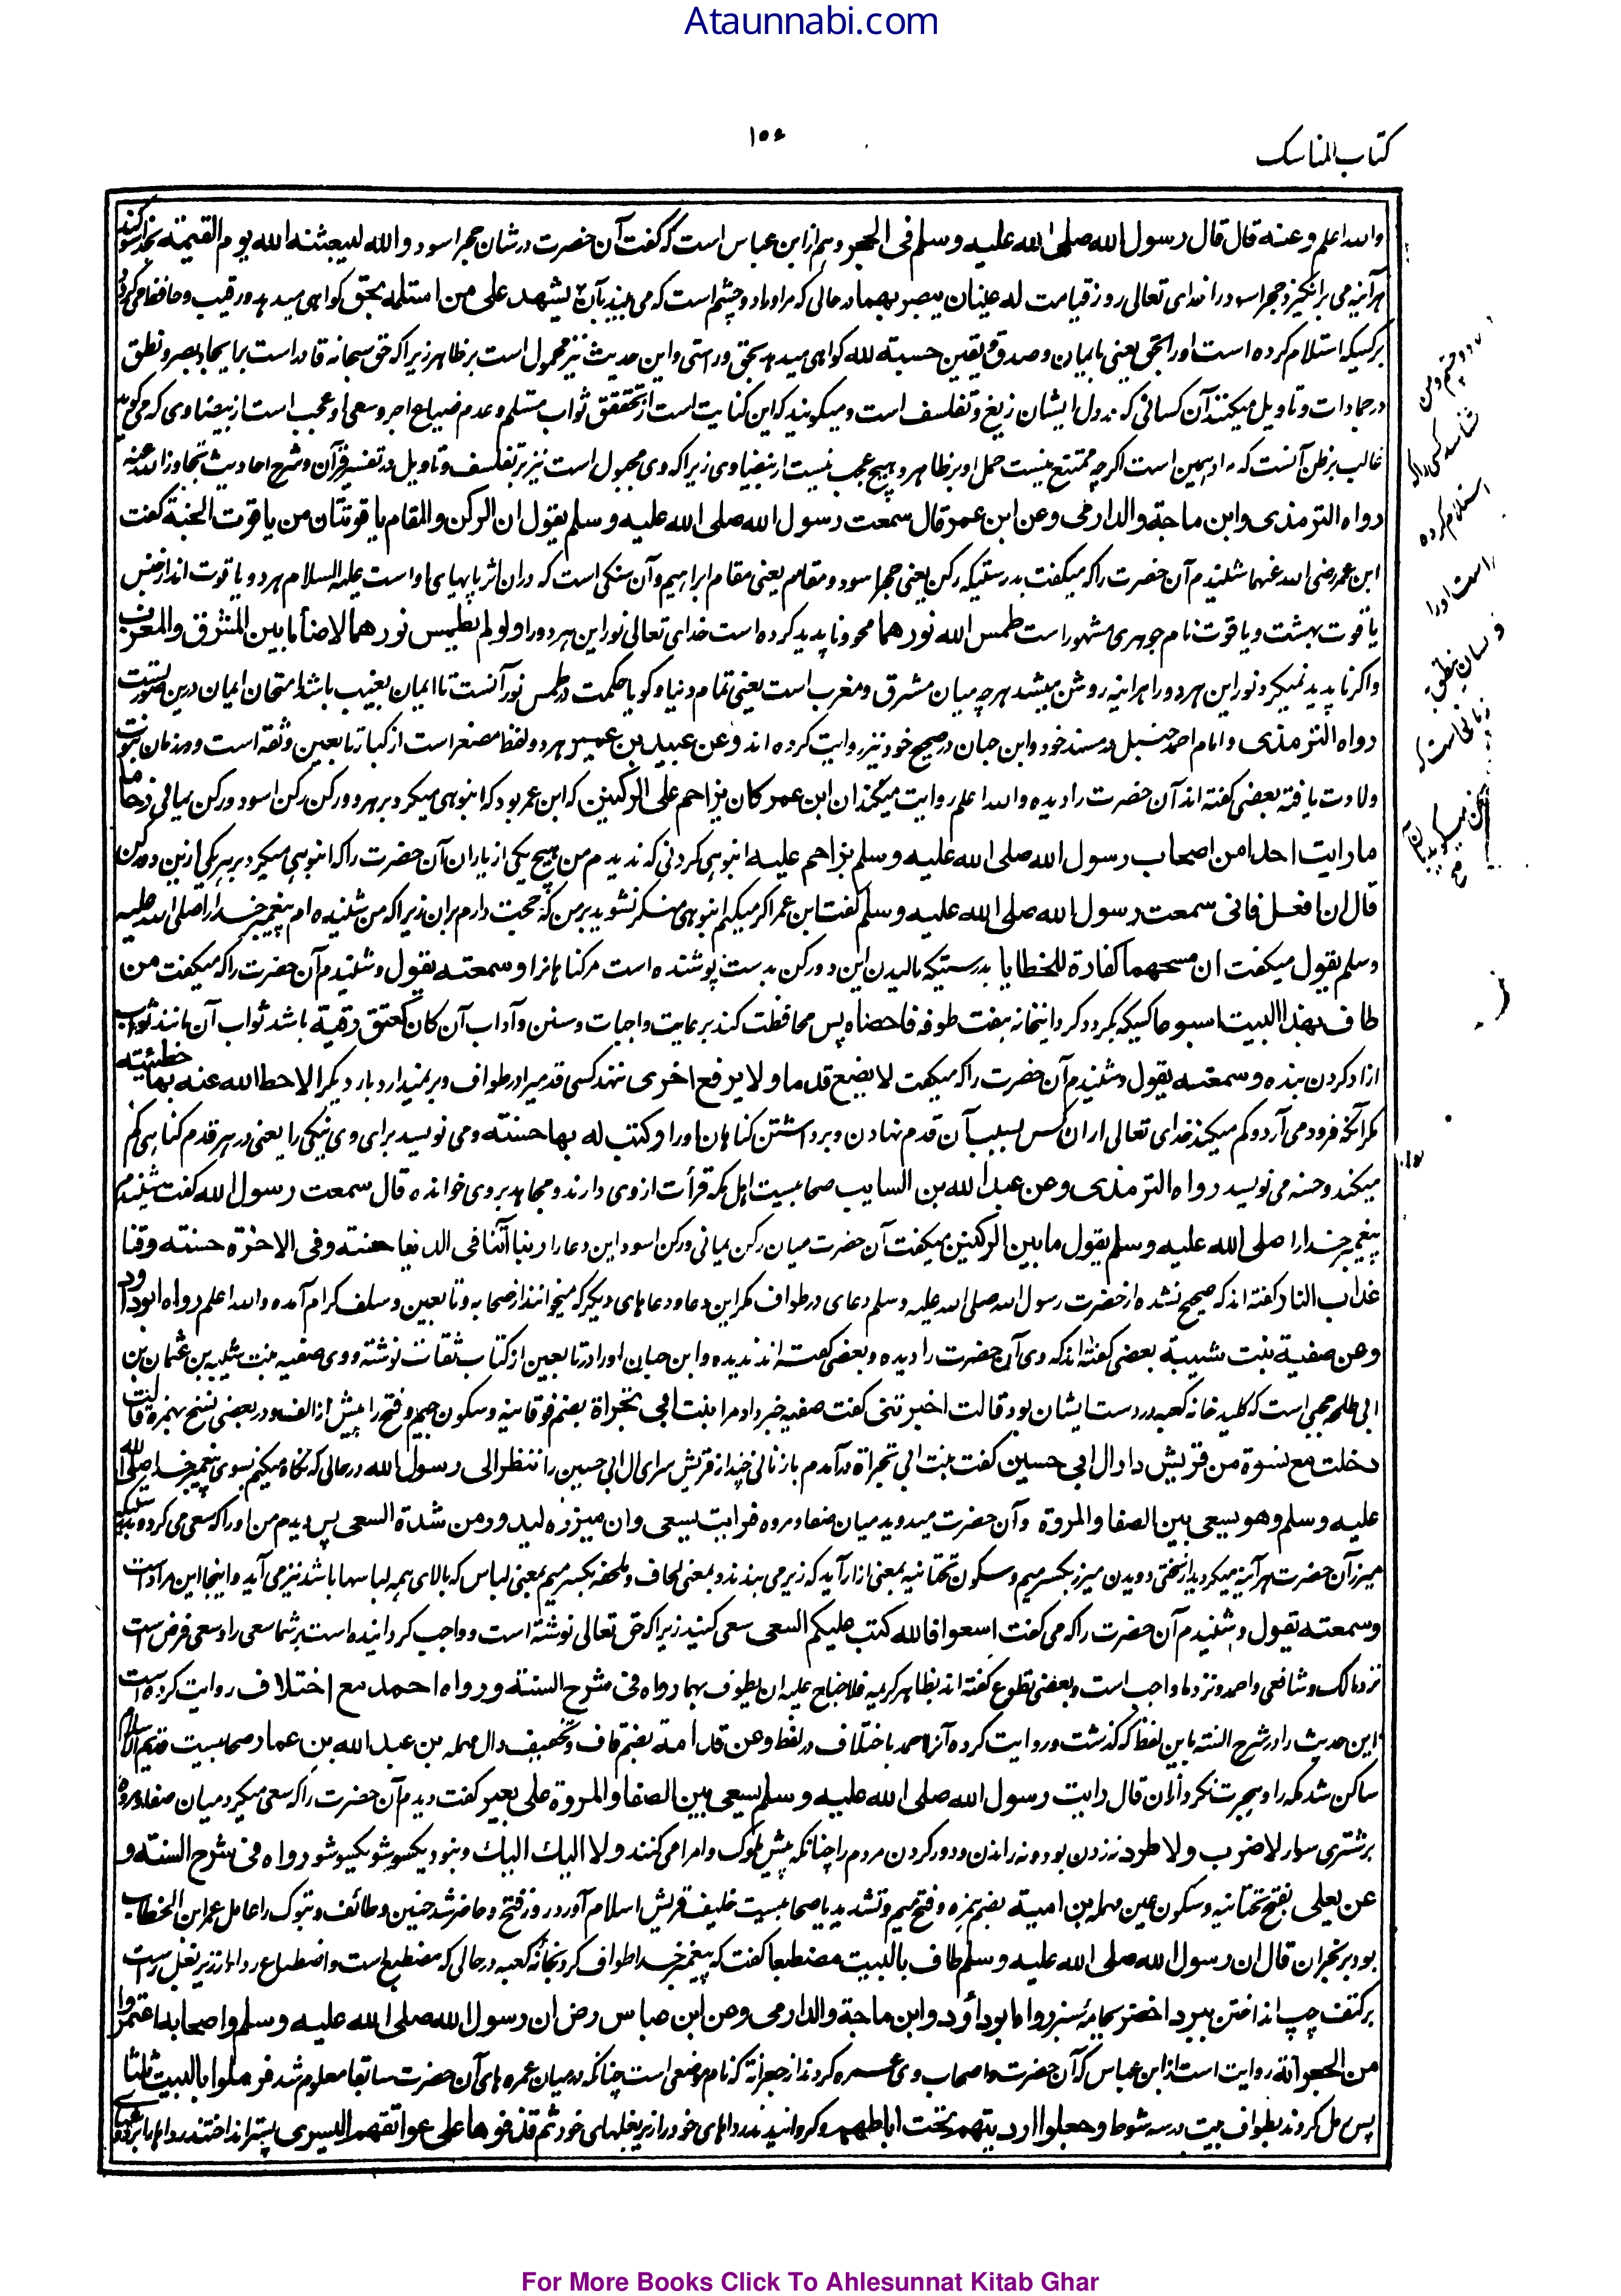 Ataunnabi.com
کتاب المناسک
۱۵۶
والله اعلم وعنه قال قال رسول الله صلی الله علیه وسلم فی الحجر وہم از ابن عباس است که گفت آن حضرت در شان حجر اسود والله لیبعثنه الله یوم القیمة بخدا سوگند
هر آینه می برانگیزد حجر اسود را خدای تعالی روز قیامت له عینان یبصر بهما در حالی که مر او را دو چشم است که می بیند بآن یشهد علی من استلمه بحق گواهی میدهد ورقیب وحافظ می گردد
بر کسیکه استلام کرده است او را بحق یعنی بایمان وصدق ویقین حسبة لله گواهی میدهد بحق وراستی واین حدیث نیز محمول است بر ظاهر زیرا که حق سبحانه قادر است بر ایجاد بصر ونطق
در جمادات وتاویل میکنند آن کسانی که در دل ایشان زیغ وتفلسف است ومیگویند که این کنایت است از تحقق ثواب مستلم وعدم ضیاع اجر وسعی او وعجب است از بیضاوی که می گوید
غالب بر ظن آنست که مراد همین است اگرچه ممتنع نیست حمل او بر ظاهر وهیچ عجب نیست از بیضاوی زیرا که وی مجبول است نیز بر تفلسف وتاویل در تفسیر قرآن وشرح احادیث تجاوز الله عنه
رواه الترمذی وابن ماجة والدارمی وعن ابن عمر قال سمعت رسول الله صلی الله علیه وسلم یقول ان الرکن والمقام یاقوتتان من یاقوت الجنة گفت
ابن عمر رضی الله عنهما شنیدم آن حضرت را که میگفت بدرستیکه رکن یعنی حجر اسود ومقام یعنی مقام ابراهیم وآن سنگی است که در آن اثر پایهای او است علیه السلام هر دو یاقوت اند از جنس
یاقوت بهشت ویاقوت نام جوهری مشهور است طمس الله نورهما محو وناپدید کرده است خدای تعالی نور این هر دو را ولو لم یطمس نورهما لاضاءا ما بین المشرق والمغرب
واگر ناپدید نمیکرد نور این هر دو را هر اینه روشن میشد هرچه میان مشرق ومغرب است یعنی تمام دنیا وگویا حکمت در طمس نور آنست تا ایمان بغیب باشد وامتحان ایمان درین صورتست
رواه الترمذی وامام احمد حنبل در مسند خود وابن حبان در صحیح خود نیز روایت کرده اند وعن عبید بن عمیر هر دو لفظ مصغر است از کبار تابعین وثقه است ودر زمان نبوت
ولادت یافته بعضی گفته اند آن حضرت را دیده والله اعلم روایت میکند ان ابن عمر کان یزاحم علی الرکنین که ابن عمر بود که انبوهی میکرد بر هر دو رکن رکن اسود ورکن یمانی زحاما
ما رایت احدا من اصحاب رسول الله صلی الله علیه وسلم یزاحم علیه انبوهی کردنی که ندیدم من هیچ یکی از یاران آن حضرت را که انبوهی میکرد بر هر یکی ازین دو رکن
قال ان افعل فانی سمعت رسول الله صلی الله علیه وسلم گفت ابن عمر اگر میکنم انبوهی منکر نشوید بر من که حجت دارم بر آن زیرا که من شنیده ام پیغمبر خدا را صلی الله علیه
وسلم یقول میگفت ان مسحهما کفارة للخطایا بدرستیکه مالیدن این دو رکن بدست پوشنده است مر گناهانرا وسمعته یقول وشنیدم آن حضرت را که میگفت من
طاف بهذا البیت اسبوعا کسیکه بگردد گرد اینخانه هفت طوفه فاحصاه پس محافظت کند برعایت واجبات وسنن وآداب آن کان کعتق رقبة باشد ثواب آن مانند ثواب
ازاد کردن بنده وسمعته یقول وشنیدم آن حضرت را که میگفت لا یضع قدما ولا یرفع اخری ننهد کسی قدمی را در طواف وبر نمیدارد بار دیگر الا حط الله عنه بها خطیئته
مگر آنکه فرود می آرد وکم میکند خدای تعالی از آن کس بسبب آن قدم نهادن وبرداشتن گناهان او را وکتب له بها حسنة ومی نویسد برای وی نیکی را یعنی در هر قدم گناهی کم
میکند وحسنه می نویسد رواه الترمذی وعن عبد الله بن السایب صحابیست اهل مکه قرأت از وی دارند ومجاهد بر وی خوانده قال سمعت رسول الله گفت شنیدم
پیغمبر خدا را صلی الله علیه وسلم یقول ما بین الرکنین میگفت آن حضرت میان رکن یمانی ورکن اسود این دعا را ربنا آتنا فی الدنیا حسنة وفی الاخرة حسنة وقنا
عذاب النار گفته اند که صحیح نشده از حضرت رسول الله صلی الله علیه وسلم دعای در طواف مگر این دعا ودعاهای دیگر که میخوانند از صحابه وتابعین وسلف کرام آمده والله اعلم رواه ابوداود
وعن صفیة بنت شیبة بعضی گفته اند که وی آن حضرت را دیده وبعضی گفته اند ندیده وابن حبان او را در تابعین از کتاب ثقات نوشته ووی صفیه بنت شیبه بن عثمان بن
ابی طلحه حجبی است که کلید خانه کعبه در دست ایشان بود قالت اخبرتنی گفت صفیه خبر داد مرا بنت ابی تجراة بضم فوقانیه وسکون جیم وفتح را پیش از الف ودر بعضی نسخ بهمزه قالت
دخلت مع نسوة من قریش دار ال ابی حسین گفت بنت ابی تجراة در آمدم با زنانی چند از قریش سرای ال ابی حسین را ننظر الی رسول الله در حالی که نگاه میکنم بسوی پیغمبر خدا صلی الله
علیه وسلم وهو یسعی بین الصفا والمروة وآن حضرت میدوید میان صفا ومروه فرایته یسعی وان میزره لیدور من شدة السعی پس دیدم من او را که سعی می کرد وبدرستیکه
میزر آن حضرت هر آینه میگردید از سختی دویدن میزر بکسر میم وسکون تحتانیه بمعنی ازار آید که زیر می بندند وبمعنی لحاف وملحفه بکسر میم بمعنی لباس که بالای همه لباسها باشد نیز می آید واینجا این مراد است
وسمعته یقول وشنیدم آن حضرت را که می گفت اسعوا فان الله کتب علیکم السعی سعی کنید زیرا که حق تعالی نوشته است وواجب گردانیده است بر شما سعی را وسعی فرض است
نزد مالک وشافعی واحمد ونزد ما واجب است وبعضی تطوع گفته اند بظاهر کریمه فلا جناح علیه ان یطوف بهما رواه فی شرح السنة ورواه احمد مع اختلاف روایت کرده است
این حدیث را در شرح السنه باین لفظ که گذشت وروایت کرده آنرا احمد باختلاف در لفظ وعن قدامة بضم قاف وتخفیف دال مهمله بن عبد الله بن عمار صحابیست قدیم الاسلام
ساکن شد مکه را وهجرت نکرد از آن قال رایت رسول الله صلی الله علیه وسلم یسعی بین الصفا والمروة علی بعیر گفت دیدم آن حضرت را که سعی میکرد میان صفا ومروه
بر شتری سوار لا ضرب ولا طرد نه زدن بود ونه راندن ودور کردن مردم را چنانکه پیش ملوک وامرا می کنند ولا الیك الیك ونبود یکسو شو یکسو شو رواه فی شرح السنة و
عن یعلی بفتح تحتانیه وسکون عین مهمله بن امیة بضم همزه وفتح میم وتشدید یا صحابیست حلیف قریش اسلام آورد روز فتح وحاضر شد حنین وطائف وتبوک را عامل عمر ابن الخطاب
بود بر نجران قال ان رسول الله صلی الله علیه وسلم طاف بالبیت مضطبعا گفت که پیغمبر خدا طواف کرد بخانه کعبه در حالی که مضطبع است واضطباع ردا را از زیر بغل راست
بر کتف چپ انداختن ببرد اخضر بجامه سبز رواه ابوداؤد وابن ماجة والدارمی وعن ابن عباس رض ان رسول الله صلی الله علیه وسلم واصحابه اعتمروا
من الجعرانة روایت است از ابن عباس که آن حضرت واصحاب وی عمره کردند از جعرانة که نام موضعی است چنانکه در میان عمره های آن حضرت سابقا معلوم شد فرملوا بالبیت ثلثا
پس رمل کردند بطواف بیت در سه شوط وجعلوا اردیتهم تحت اباطهم وگردانیدند رداهای خود را زیر بغلهای خود ثم قذفوها علی عواتقهم الیسری پستر انداختند رداها را بر
شناسد کسی را که
استلام کرده
است او را
For More Books Click To Ahlesunnat Kitab Ghar